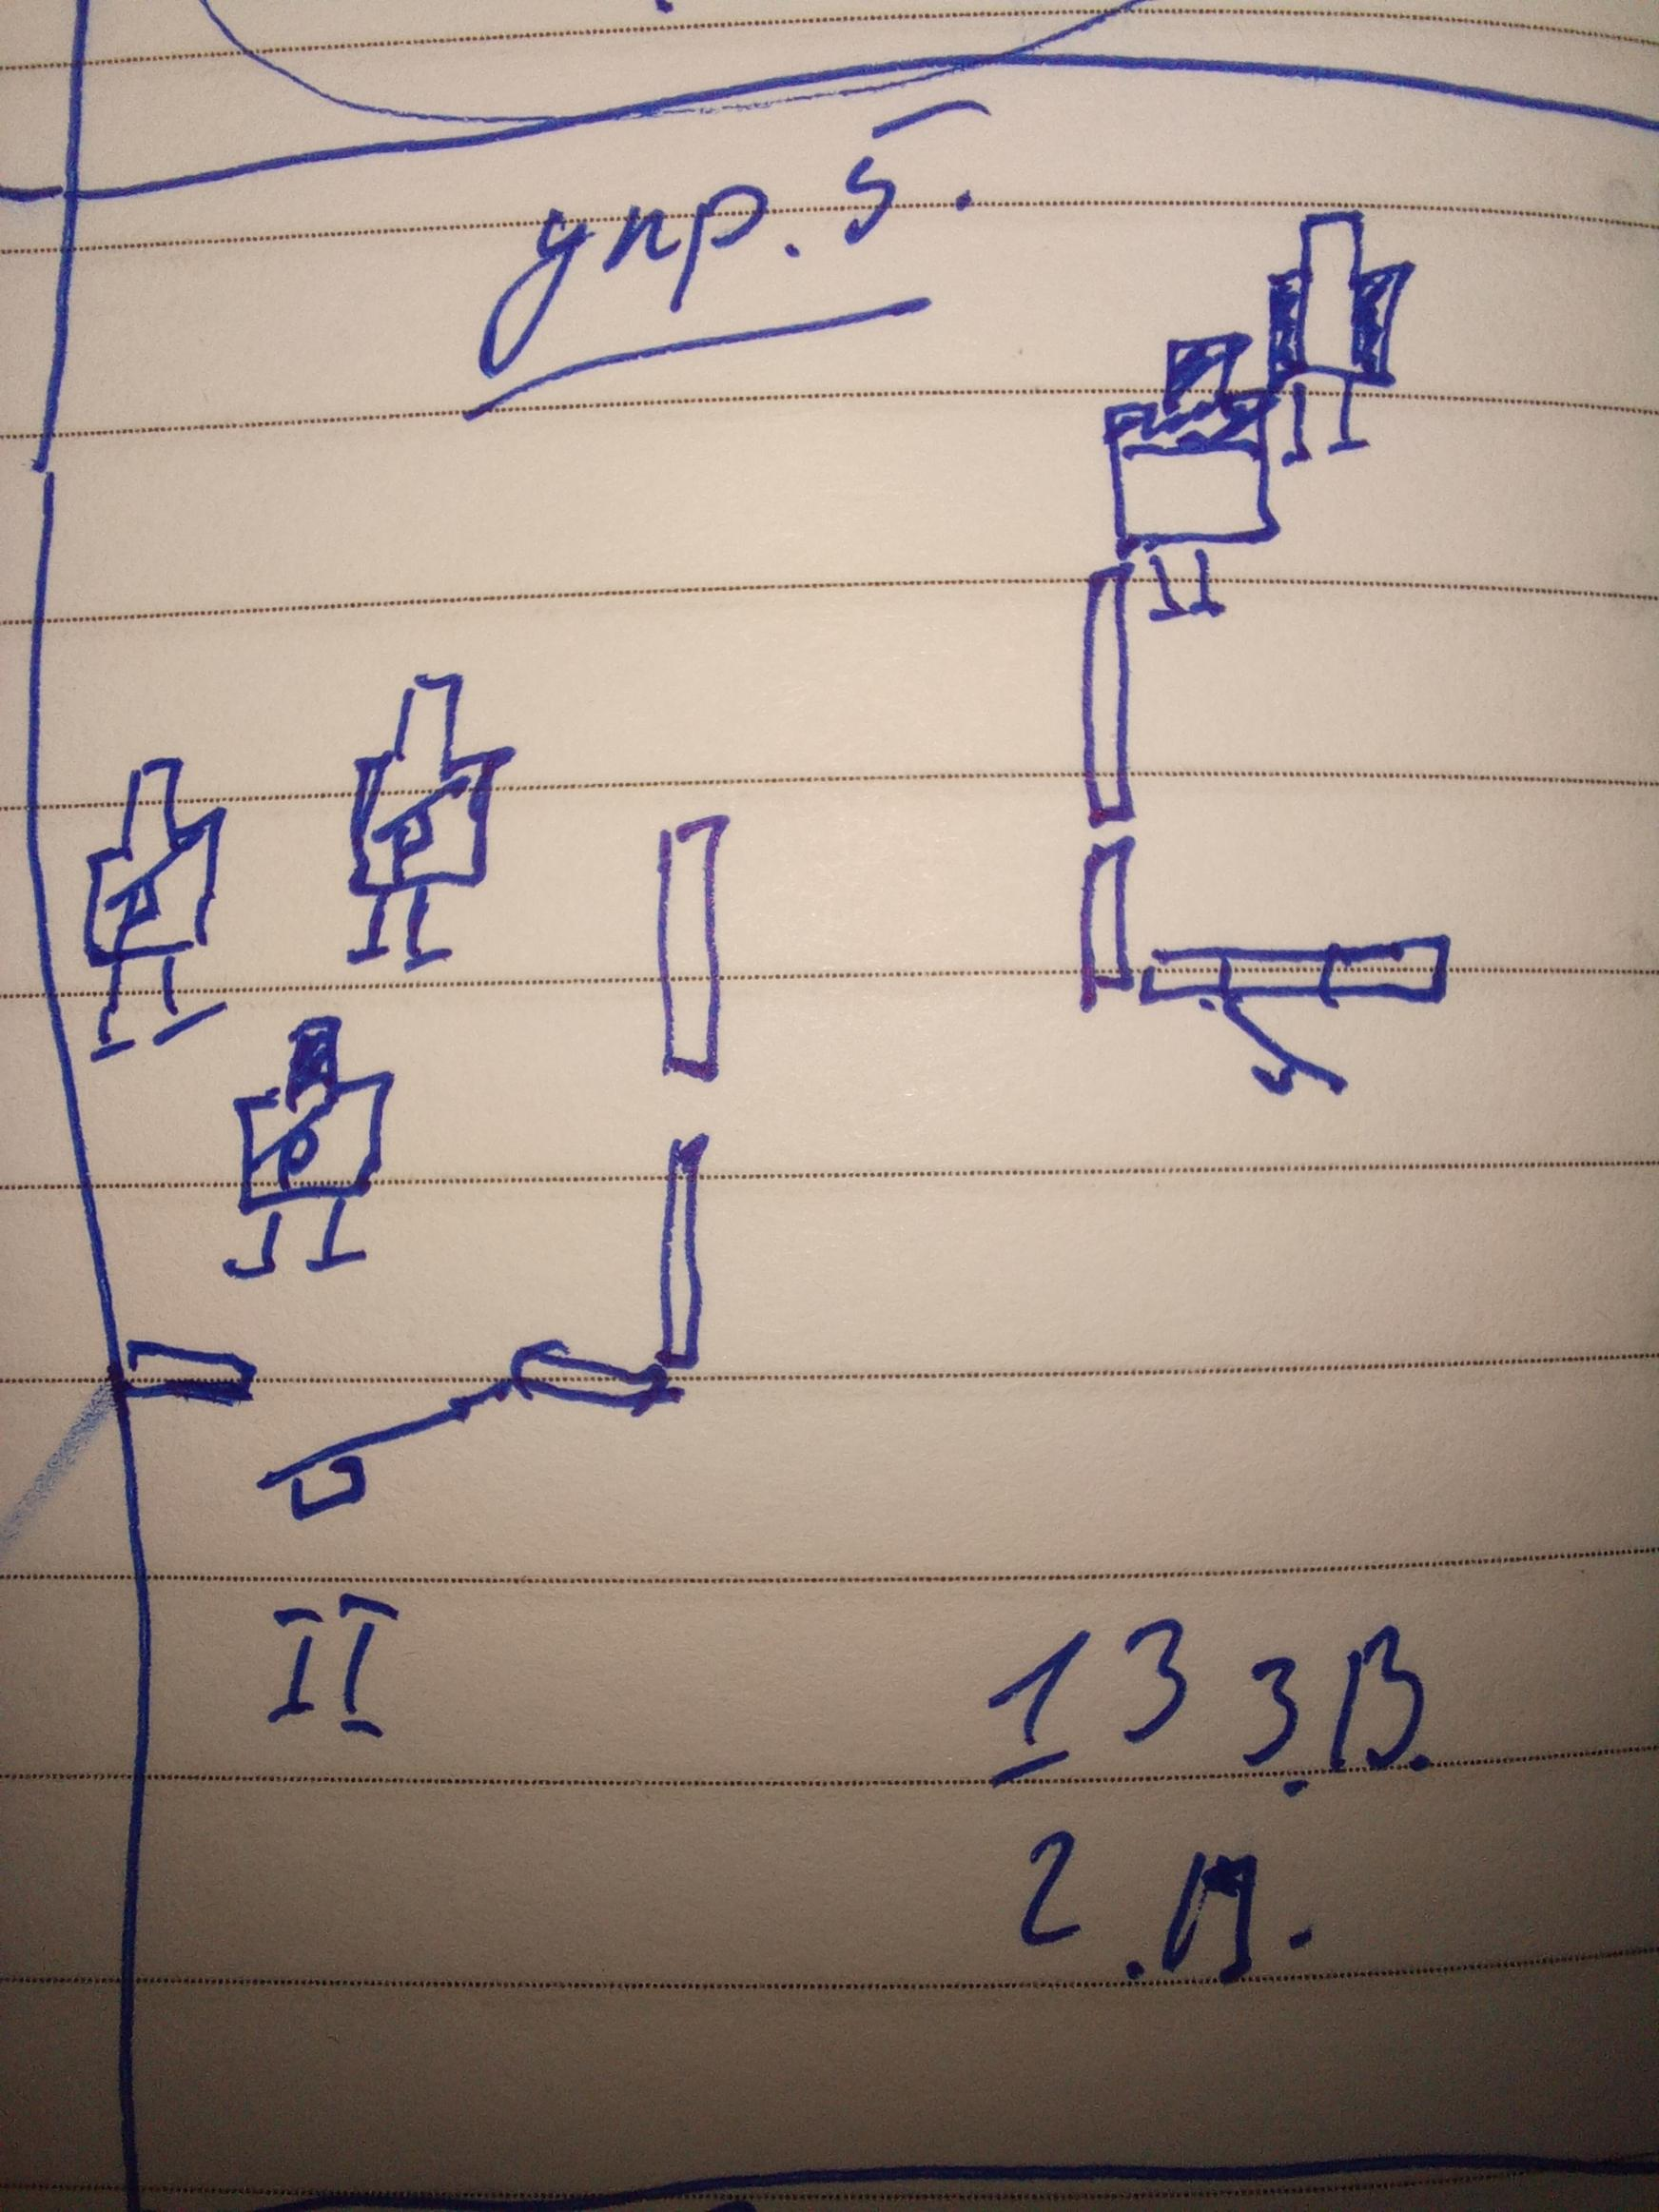 упр. 5.
II
1 3 3. В.
2.